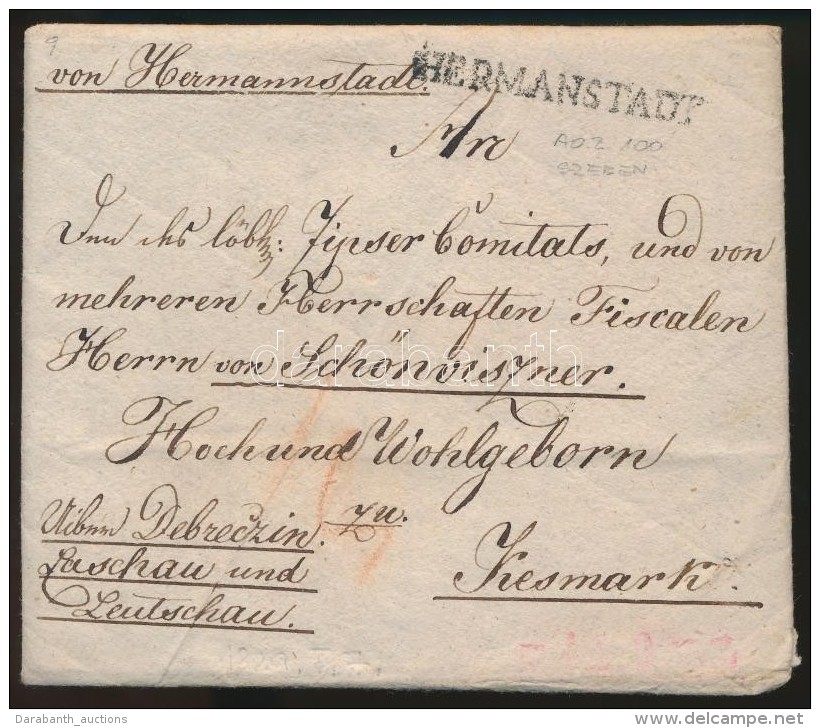 9
von Hermannstadt.
HERMANSTADT
An
AO.Z 100
SZEBEN
Den des löbl: Zipser Comitats, und von
mehreren Herrschaften Fiscalen
Herrn von Schönviszner.
darabanth
Hoch und Wohlgeborn
Uiber Debreczin. zu.
Kaschau und
Leutschau.
Kesmark.
Darabanth_auctions
delcampe.net